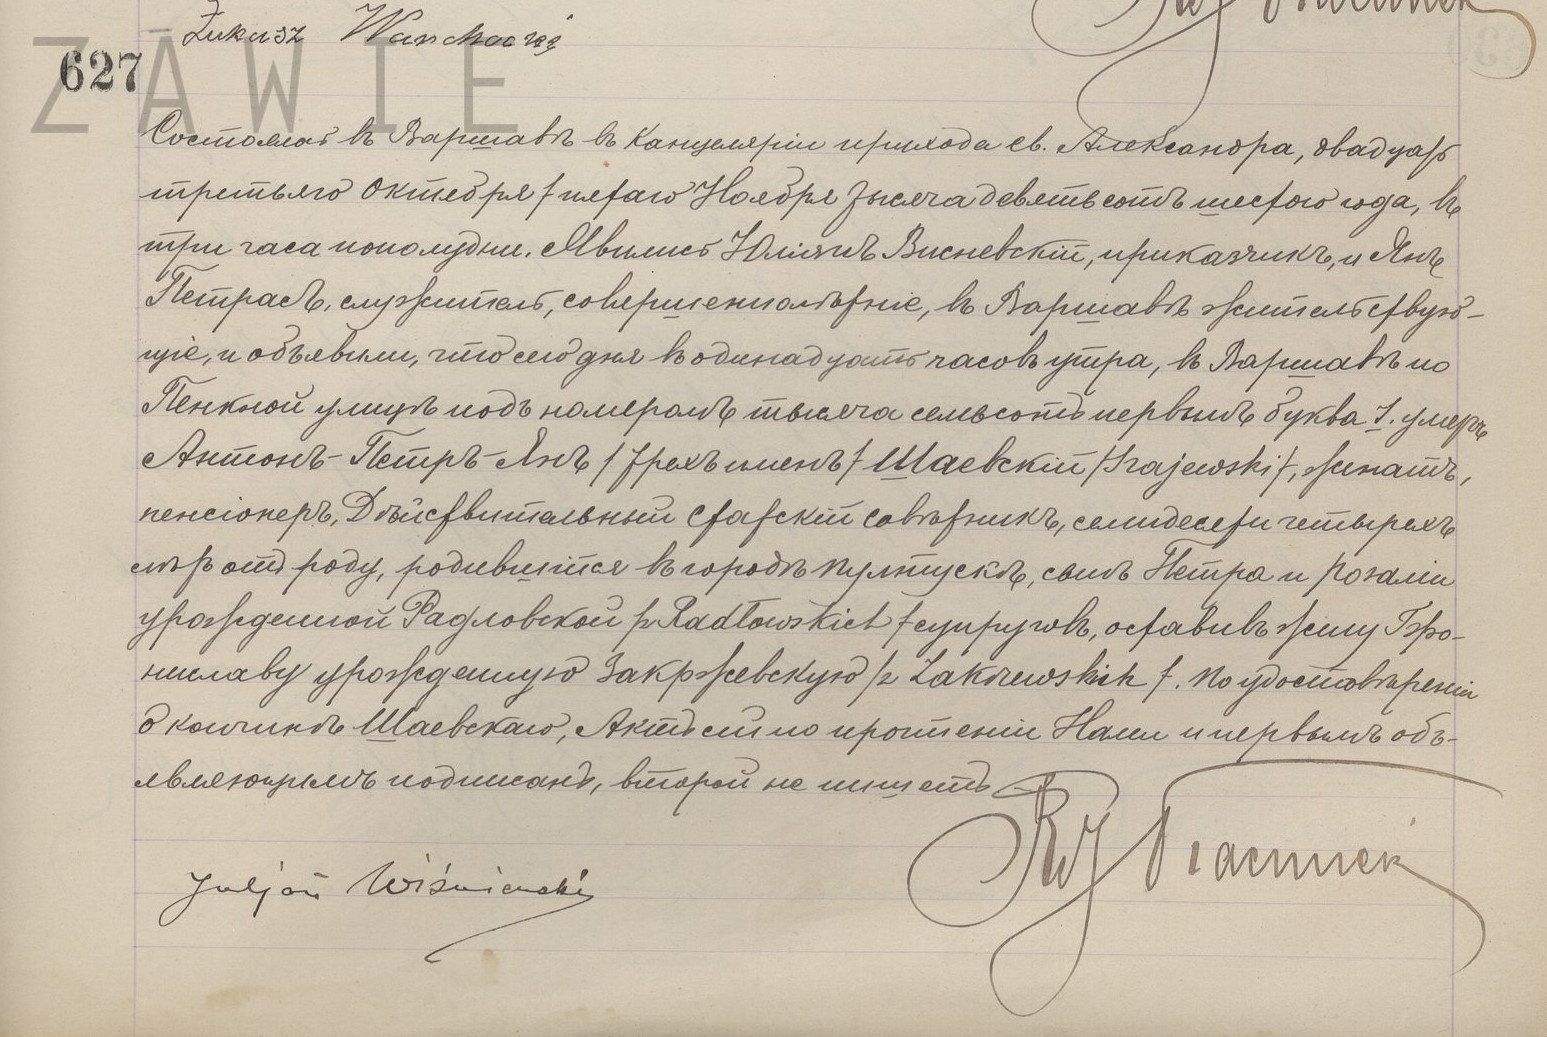 Łukasz Wanchocki
627
ZAWIE
Состоялось въ Варшавѣ въ канцеляріи прихода св. Александра, двадцать
третьяго Октября / пятаго Ноября тысяча девятьсотъ шестого года, въ
три часа пополудни. Явились Юліянъ Висневскій, приказчикъ, и Янъ
Петрасъ, служитель, совершеннолѣтніе, въ Варшавѣ жительствую-
щіе, и объявили, что сего дня въ одинадцать часовъ утра, въ Варшавѣ по
Пенкной улицѣ подъ номеромъ тысяча семьсотъ первымъ буква I. умеръ
Антонъ-Петръ-Янъ / трехъ именъ / Шаевскій / Szajewski /, женатъ,
пенсіонеръ, Дѣйствительный Статскій Совѣтникъ, семидесяти четырехъ
лѣтъ отъ роду, родившійся въ городѣ Пултускѣ, сынъ Петра и Розаліи
урожденной Радловской / z Radłowskich / супруговъ, оставивъ жену Бро-
ниславу урожденную Закржевскую / z Zakrzewskich /. По удостовѣреніи
о кончинѣ Шаевскаго, Актъ сей по прочтеніи Нами и первымъ объ-
являющимъ подписанъ, второй не пишетъ
Juljan Wiśniewski